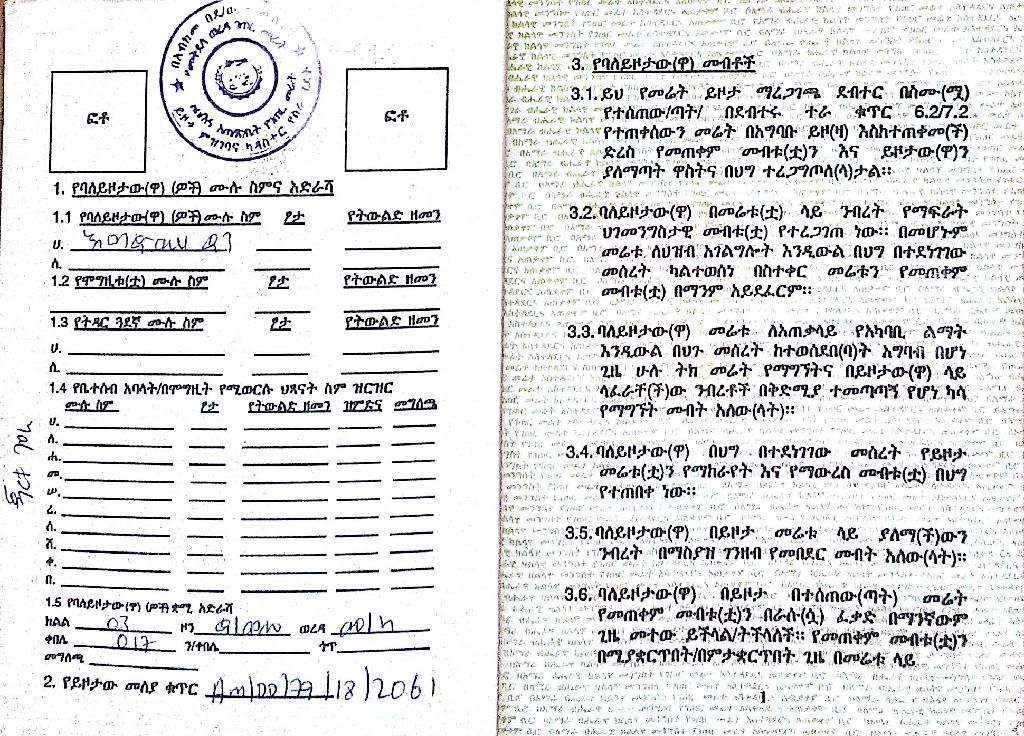 ፎቶ
ፎቶ
1. የባለይዞታው(ዋ) (ዎች) ሙሉ ስምና አድራሻ
1.1 የባለይዞታው(ዋ) (ዎች) ሙሉ ስም ፆታ የትውልድ ዘመን
ሀ.
ለ.
1.2 የሞግዚቱ(ቷ) ሙሉ ስም ፆታ የትውልድ ዘመን
1.3 የትዳር ጓደኛ ሙሉ ስም ፆታ የትውልድ ዘመን
ሀ.
ለ.
1.4 የቤተሰብ አባላት/በሞግዚት የሚወርሱ ህጻናት ስም ዝርዝር
ሙሉ ስም ፆታ የትውልድ ዘመን ዝምድና መግለጫ
ሀ.
ለ.
ሐ.
መ.
ሠ.
ረ.
ሰ.
ሸ.
ቀ.
በ.
1.5 የባለይዞታው(ዋ) (ዎች) ቋሚ አድራሻ
ክልል 03 ዞን ወረዳ
ቀበሌ 017 ን/ቀበሌ ጎጥ
መግለጫ
2. የይዞታው መለያ ቁጥር Am/DO/77/18/2061
3. የባለይዞታው(ዋ) መብቶች
3.1. ይህ የመሬት ይዞታ ማረጋገጫ ደብተር በስሙ(ሚ)
የተሰጠው/ጣት/ በደብተሩ ተራ ቁጥር 6.2/7.2
የተጠቀሰውን መሬት በአግባቡ ይዞ(ዛ) እስከተጠቀመ(ች)
ድረስ የመጠቀም መብቱ(ቷ)ን እና ይዞታው(ዋ)ን
ያለማጣት ዋስትና በህግ ተረጋግጦለ(ላ)ታል።
3.2. ባለይዞታው(ዋ) በመሬቱ(ቷ) ላይ ንብረት የማፍራት
ህገመንግስታዊ መብቱ(ቷ) የተረጋገጠ ነው። በመሆኑም
መሬቱ ለህዝብ አገልግሎት እንዲውል በህግ በተደነገገው
መሰረት ካልተወሰነ በስተቀር መሬቱን የመጠቀም
መብቱ(ቷ) በማንም አይደፈርም።
3.3. ባለይዞታው(ዋ) መሬቱ ለአጠቃላይ የአካባቢ ልማት
እንዲውል በህጉ መሰረት ከተወሰደበ(ባ)ት አግባብ በሆነ
ጊዜ ሁሉ ትክ መሬት የማግኘትና በይዞታው(ዋ) ላይ
ላፈራቸ(ች)ው ንብረቶች በቅድሚያ ተመጣጣኝ የሆነ ካሳ
የማግኘት መብት አለው(ላት)።
3.4. ባለይዞታው(ዋ) በህግ በተደነገገው መሰረት የይዞታ
መሬቱ(ቷ)ን የማከራየት እና የማውረስ መብቱ(ቷ) በህግ
የተጠበቀ ነው።
3.5. ባለይዞታው(ዋ) በይዞታ መሬቱ ላይ ያለማ(ች)ውን
ንብረት በማስያዝ ገንዘብ የመበደር መብት አለው(ላት)።
3.6. ባለይዞታው(ዋ) በይዞታ በተሰጠው(ጣት) መሬት
የመጠቀም መብቱ(ቷ)ን በራሱ(ሷ) ፈቃድ በማንኛውም
ጊዜ መተው ይችላል/ትችላለች። የመጠቀም መብቱ(ቷ)ን
በሚያቋርጥበት/በምታቋርጥበት ጊዜ በመሬቱ ላይ
1